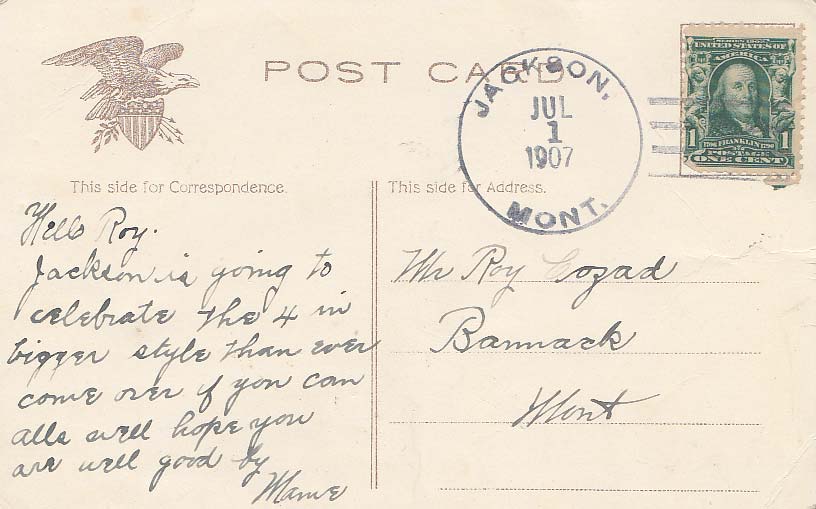 POST CARD
JACKSON,
JUL
1
1907
MONT.
UNITED STATES OF
AMERICA
1 1
1706 FRANKLIN 1790
POSTAGE
ONE CENT
This side for Correspondence.
This side for Address.
Hello Roy.
Jackson is going to
celebrate the 4 in
bigger style than ever
come over if you can
alls well hope you
are well good by
Mame
Mr Roy Cozad
Bannack
Mont